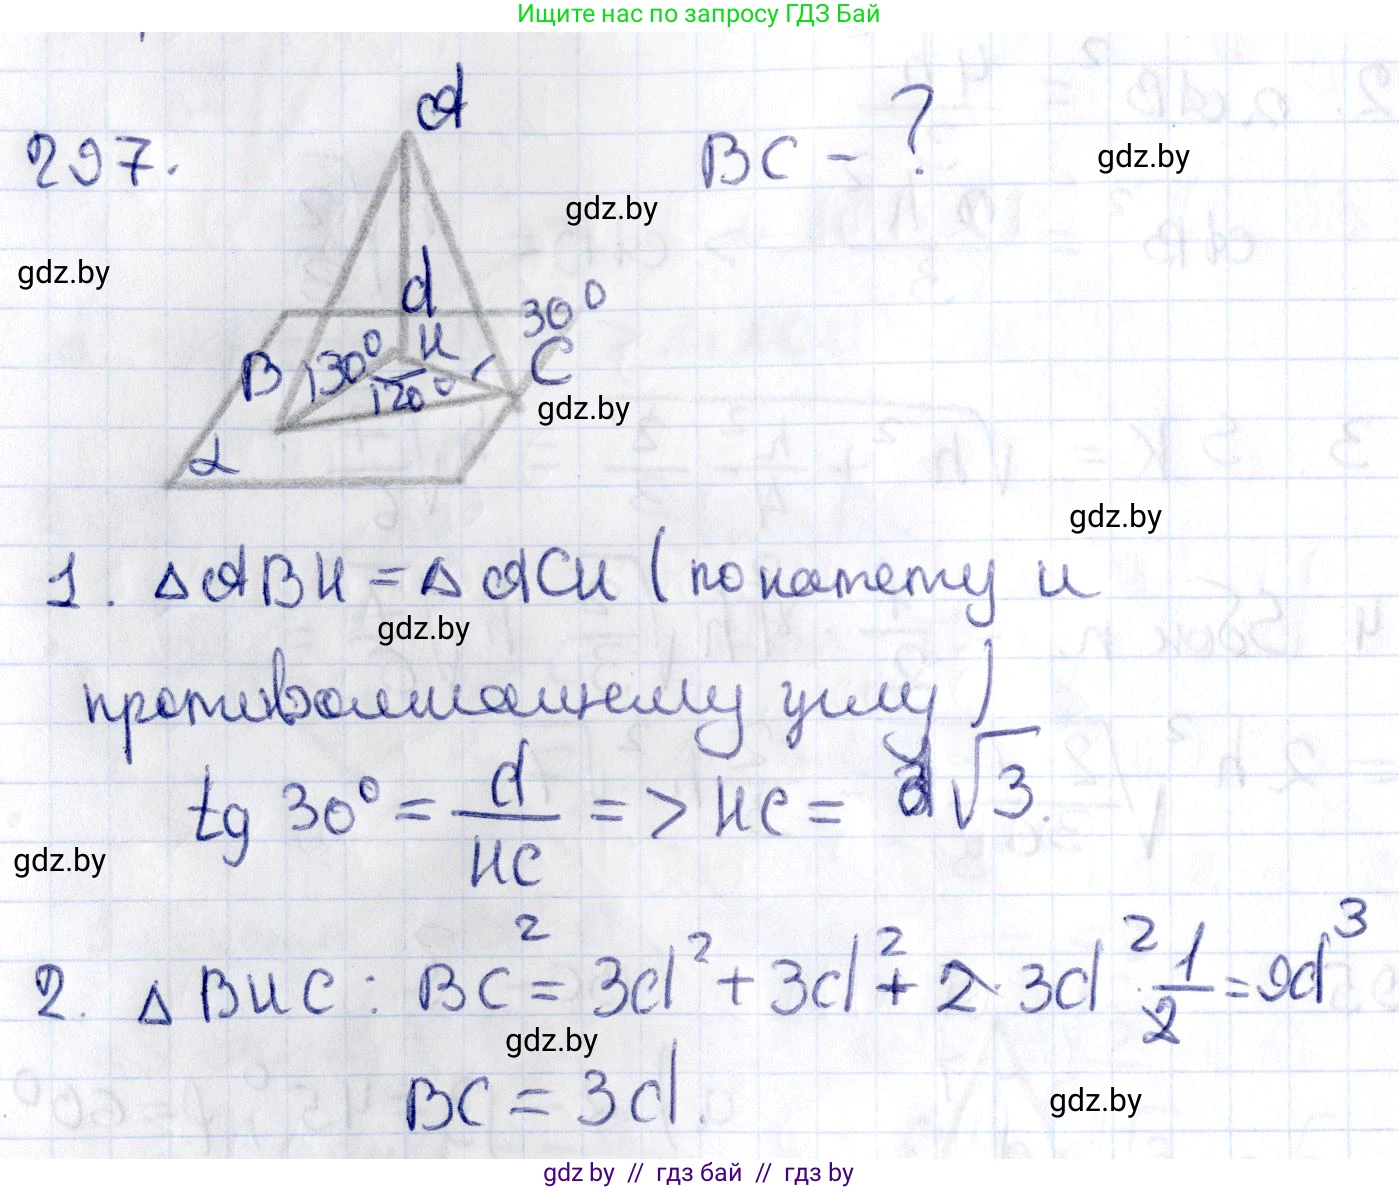 Ищите нас по запросу ГДЗ Бай
297.
A
BC - ?
gdz.by
gdz.by
gdz.by
d
30°
B 30° H C
120°
gdz.by
α
gdz.by
1. △ABH = △ACH (по катету и
gdz.by
противолежащему углу)
tg 30° = d/HC => HC = d√3.
gdz.by
2. △BHC: BC² = 3d² + 3d² + 2·3d²·1/2 = 9d³
gdz.by
BC = 3d.
gdz.by
gdz.by // гдз бай // гдз by